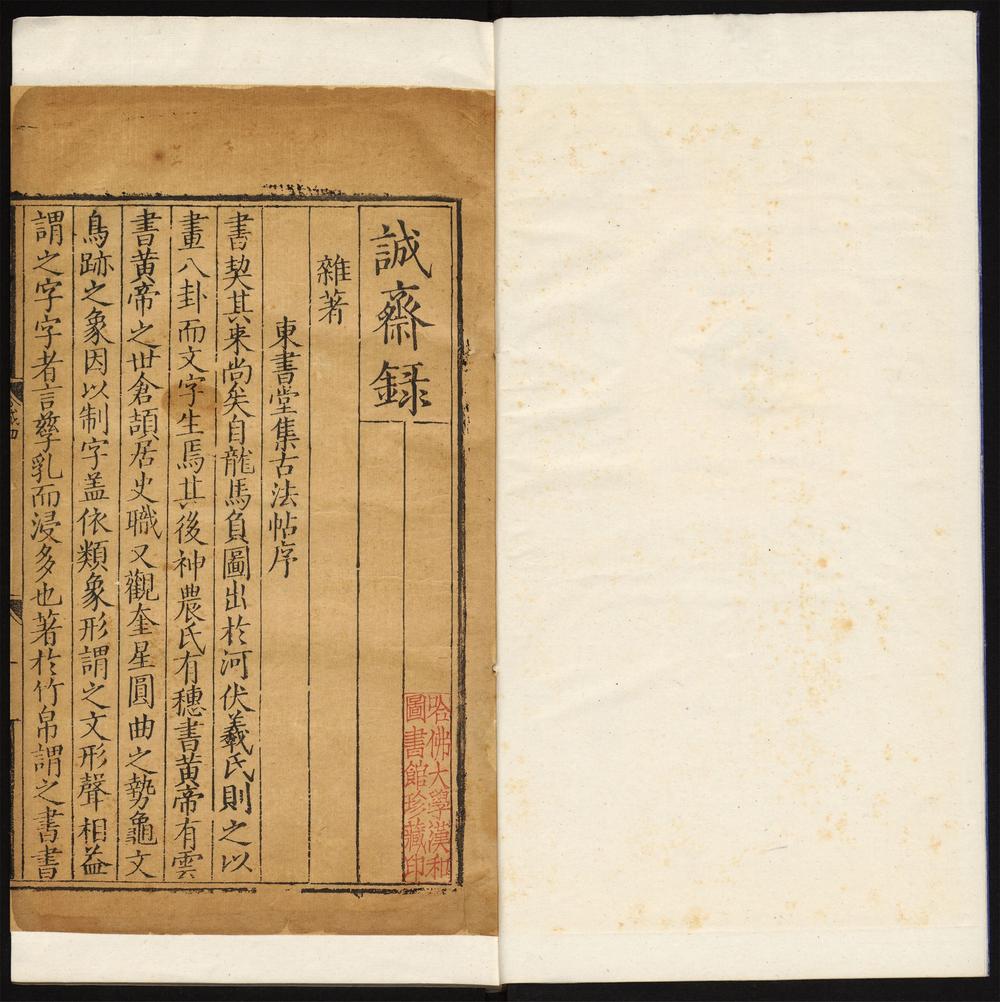 誠齋録
雜著
東書堂集古法帖序
書契其來尚矣自龍馬負圖出於河伏羲氏則之以
畫八卦而文字生焉其後神農氏有穗書黃帝有雲
書黃帝之世倉頡居史職又觀奎星圓曲之勢龜文
鳥跡之象因以制字盖依類象形謂之文形聲相益
謂之字字者言孳乳而浸多也著於竹帛謂之書書
哈佛大學漢和
圖書館珍藏印